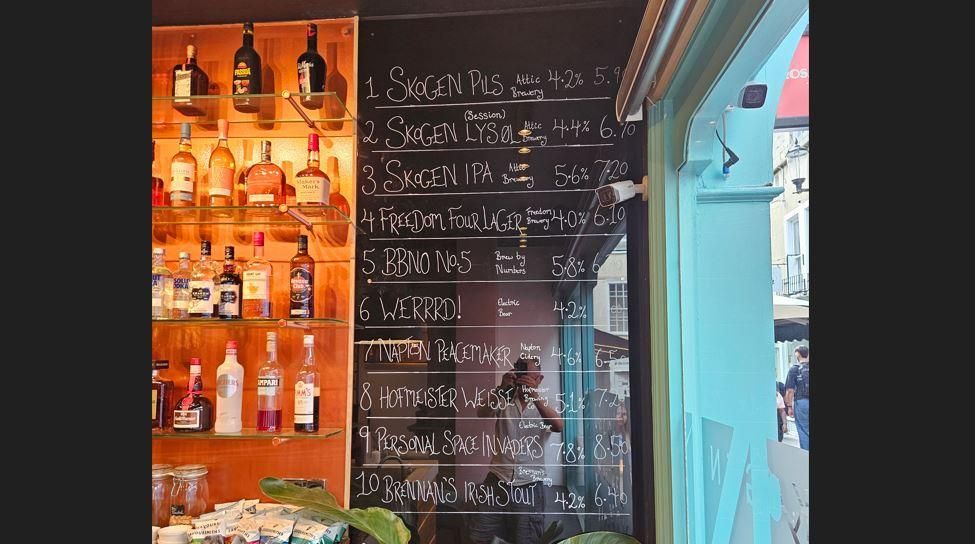 1 SKOGEN PILS Attic Brewery 4.2% 5.9
(Session)
2 SKOGEN LYSØL Attic Brewery 4.4% 6.70
3 SKOGEN IPA Attic Brewery 5.6% 7.20
4 FREEDOM FOUR LAGER Freedom Brewery 4.0% 6.10
5 BBNO No.5 Brew by Numbers 5.8% 6
6 WERRRD! Electric Bear 4.2%
7 NAPTON PEACEMAKER Napton Cidery 4.6% 6.5
8 HOFMEISTER WEISSE Hofmeister Brewing Co 5.1% 7.2
Electric Bear
9 PERSONAL SPACE INVADERS 7.8% 8.50
Brennan's Brewery
10 BRENNAN'S IRISH STOUT 4.2% 6.40
PASSOA
Maker's Mark
CAMPARI